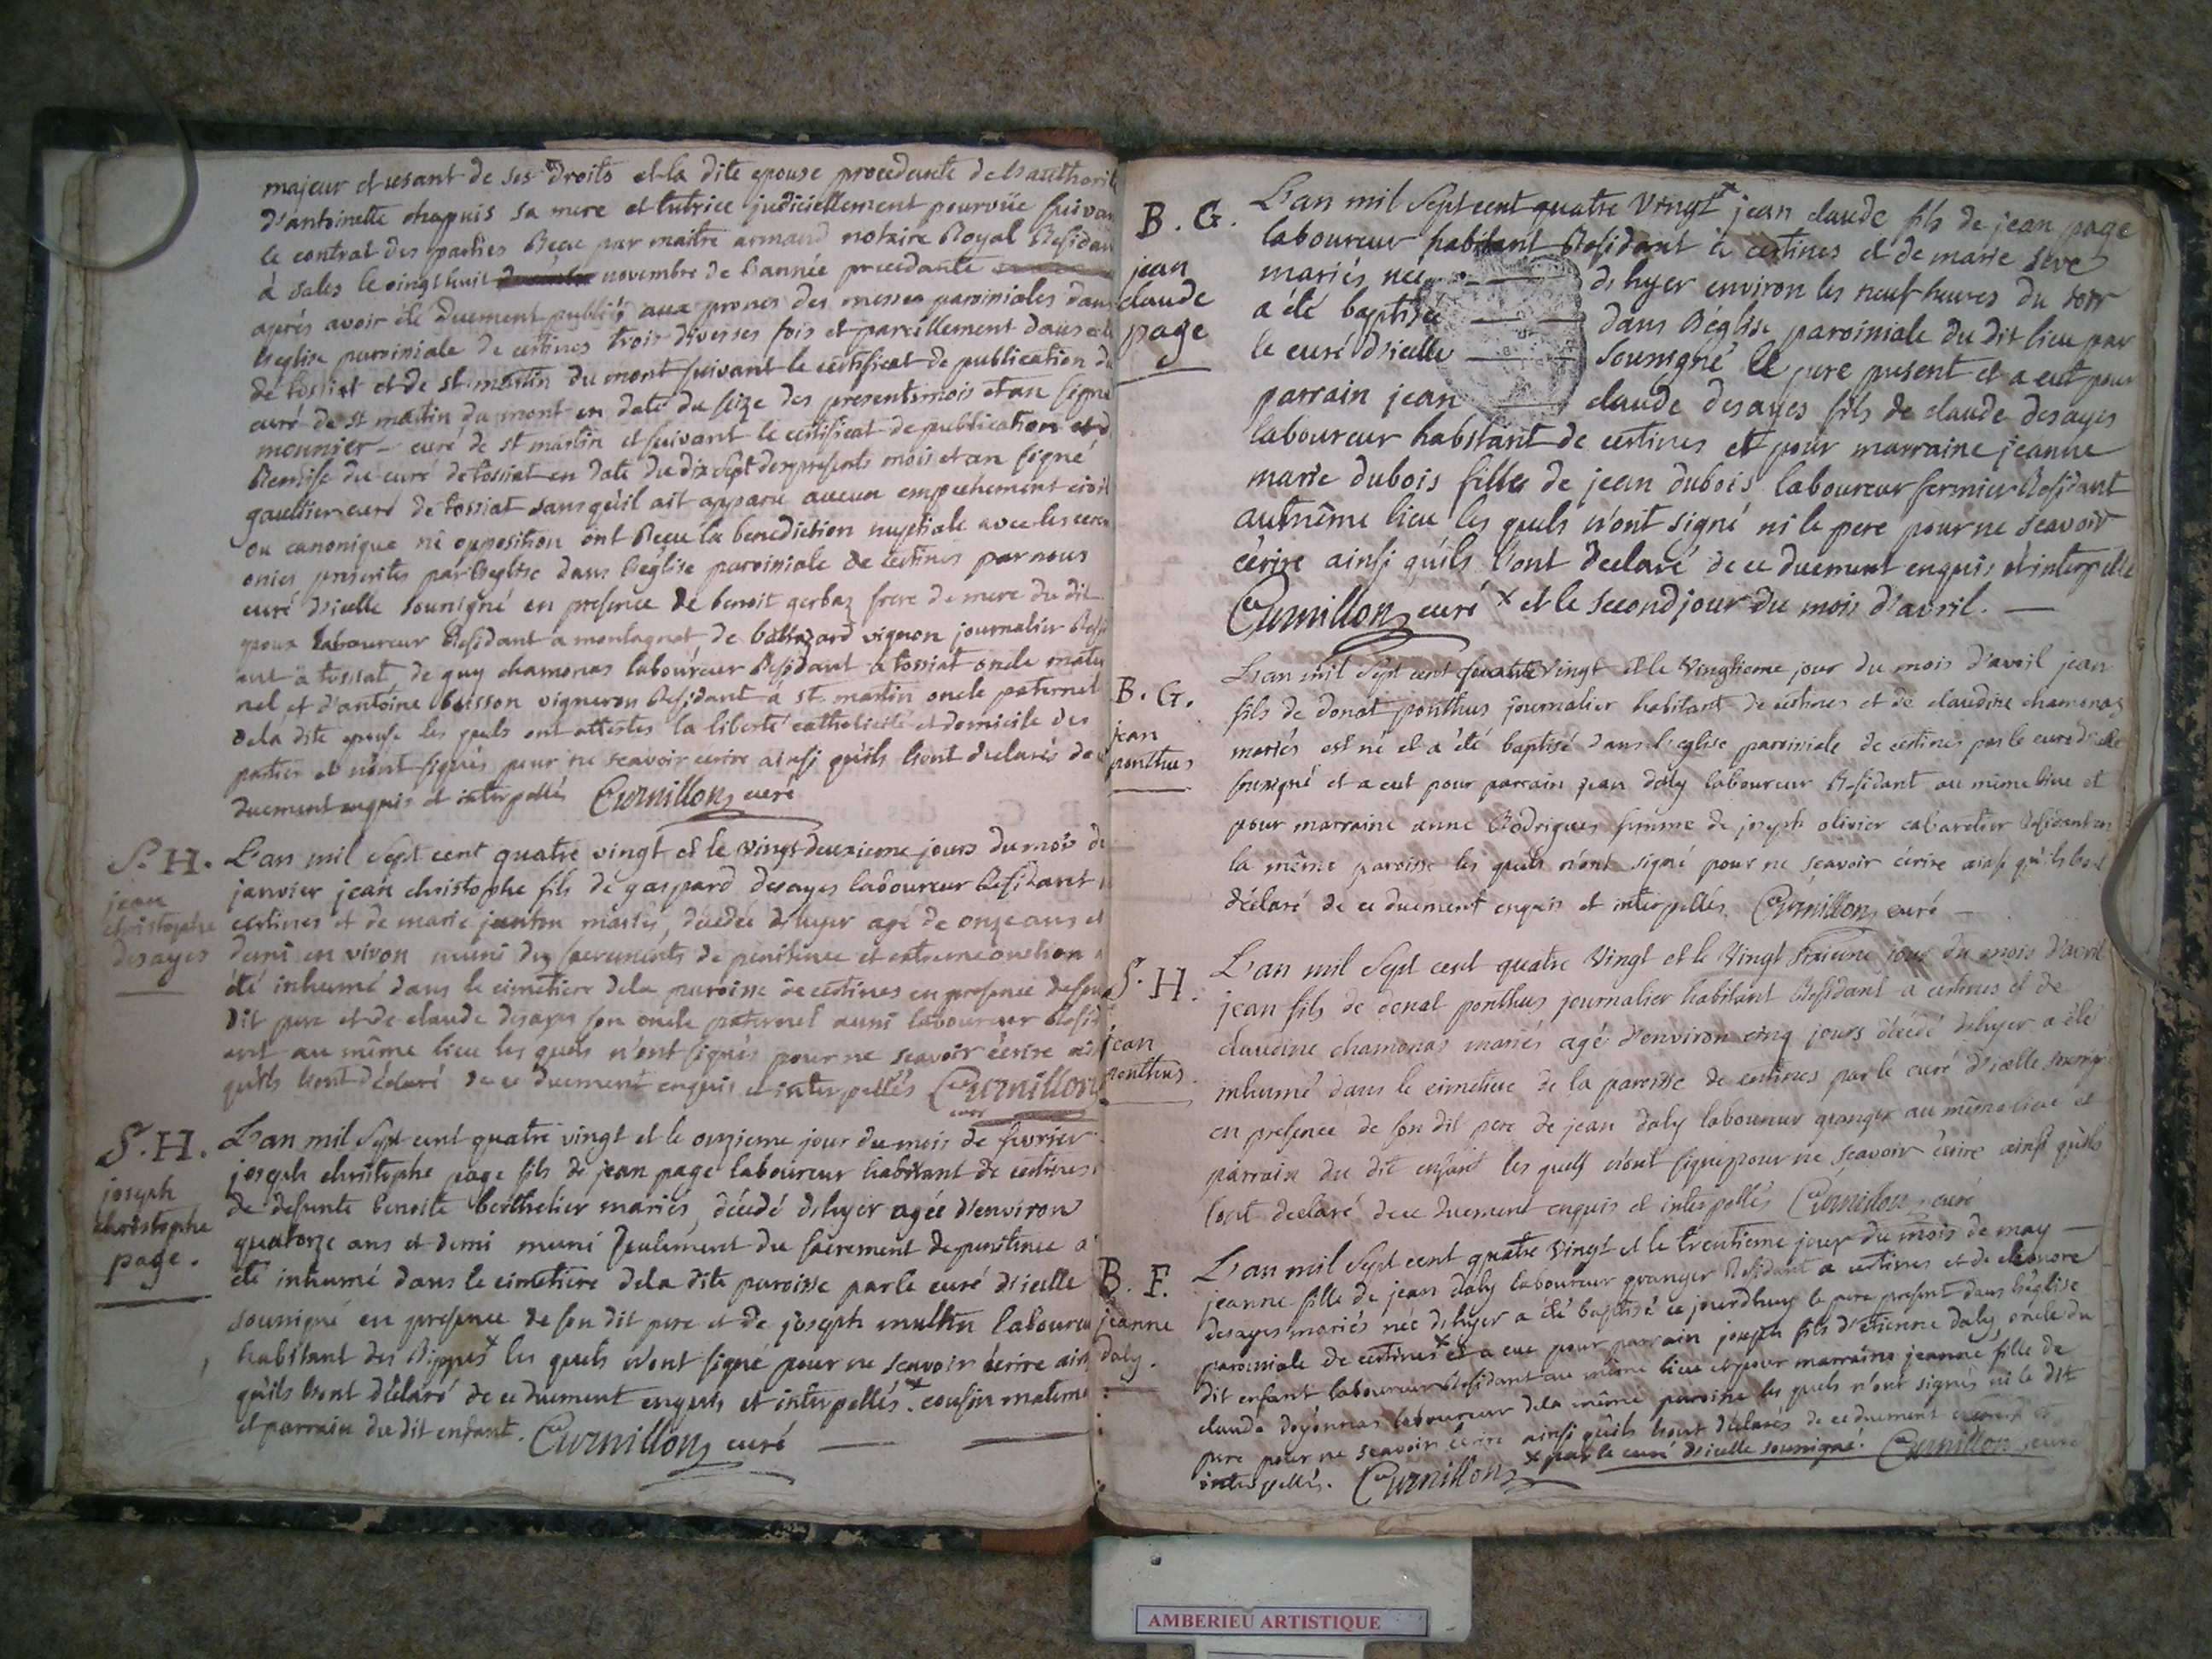 majeur et usant de ses droits et la dite epouse procedante de l'authorit
d'antoinette chapuis sa mere et tutrice judiciellement pourvüe suivan
le contrat des parties Recu par maitre armand notaire Royal Residan
à sales le vingt huit novembre de l'année precedante
aprés avoir été duement publiés aux prones des messes paroissiales dans
l'eglise paroissiale de certines trois diverses fois et pareillement dans
de tossiat et de st martin du mont suivant le certificat de publication du
curé de st martin du mont en date du seize des presents mois et an signé
mounier curé de st martin et suivant le certificat de publication et d
Remise du curé de tossiat en date du dix sept des presents mois et an signé
gauthier curé de tossiat sans qu'il ait apparu aucun empechement civil
ou canonique ni opposition ont Recu la benediction nuptiale avec les cerem
onies prescrites par l'eglise dans l'église paroissiale de certines par nous
curé d'icelle soussigné en presence de benoit gerbaz frere de mere du dit
epoux laboureur Residant a montagnat, de baltazard vignon journalier Resid
ant à tossiat, de guy chamonas laboureur Residant a tossiat oncle mater
nel, et d'antoine buisson vigneron Residant à st martin oncle paternel
de la dite epouse les quels ont attestés la liberté catholicité et domicile des
parties et n'ont signés pour ne scavoir écrire ainsi qu'ils l'ont declarés de
duement enquis et interpellés Curnillon curé
S. H.
jean
christophe
desayes
L'an mil sept cent quatre vingt et le vingt deuxieme jours du mois de
janvier jean christophe fils de gaspard desayes laboureur Residant
certines et de marie mariés, décédé d'hyer agé de onze ans et
demi en viron muni des sacrements de penitence et extremeonction
été inhumé dans le cimetiere de la paroisse de certines en presence de son
dit pere et de claude desayes son oncle paternel aussi laboureur Resid
ant au même lieu les quels n'ont signés pour ne scavoir écrire ains
qu'ils l'ont déclaré de ce duement enquis et interpellés Curnillon
curé
S. H.
joseph
christophe
page.
L'an mil sept cent quatre vingt et le onzieme jour du mois de fevrier
joseph christophe page fils de jean page laboureur habitant de certines
de defunte benoite berthelier mariés, décédé d'hyer agée d'environ
quatorze ans et demi muni seulement du sacrement de penitence a
été inhumé dans le cimetiere de la dite paroisse par le curé d'icelle
soussigné en presence de son dit pere et de joseph laboureur
habitant des Rippes x les quels n'ont signé pour ne scavoir écrire ains
qu'ils l'ont déclaré de ce duement enquis et interpellés. x cousin materne
et parrain du dit enfant. Curnillon curé
B. G.
jean
claude
page
L'an mil sept cent quatre vingt x jean claude fils de jean page
laboureur habitant Residant à certines et de marie seve
mariés, née d'hyer environ les neuf heures du soir
a été baptisé dans l'église paroissiale du dit lieu par
le curé d'icelle soussigné le pere present et a eut pour
parrain jean claude desayes fils de claude desayes
laboureur habitant de certines et pour marraine jeanne
marie dubois fille de jean dubois laboureur fermier Residant
au même lieu les quels n'ont signé ni le pere pour ne scavoir
écrire ainsi qu'ils l'ont declaré de ce duement enquis et interpellé
Curnillon curé x et le second jour du mois d'avril.
B. G.
jean
ponthus
L'an mil sept cent quatre vingt et le vingtieme jour du mois d'avril jean
fils de donat ponthus journalier habitant de certines et de claudine chamonas
mariés est né et a été baptisé dans l'eglise paroissiale de certines par le curé d'icelle
soussigné et a eut pour parrain jean daly laboureur Residant au même lieu et
pour marraine anne Rodrigues femme de joseph olivier cabaretier Residant en
la même paroisse les quels n'ont signé pour ne sçavoir écrire ainsi qu'ils l'ont
déclaré de ce duement enquis et interpellés. Curnillon curé
S. H.
jean
ponthus.
L'an mil sept cent quatre vingt et le vingt sixieme jour du mois d'avril
jean fils de donat ponthus journalier habitant Residant a certines et de
claudine chamonas mariés agé d'environ cinq jours décédé d'hyer a été
inhumé dans le cimetiere de la paroisse de certines par le curé d'icelle soussigné
en presence de son dit pere de jean daly laboureur granger au même lieu et
parrain du dit enfant les quels n'ont signé pour ne sçavoir écrire ainsi qu'ils
l'ont declaré de ce duement enquis et interpellés Curnillon curé
B. F.
jeanne
daly.
L'an mil sept cent quatre vingt et le trentieme jour du mois de may
jeanne fille de jean daly laboureur granger Residant a certines et de eleonore
desayes mariés née d'hyer a été baptisé ce jourdhuy le pere present dans l'église
paroissiale de certines x et a eue pour parrain joseph fils d'etienne daly oncle du
dit enfant laboureur Residant au même lieu et pour marraine jeanne fille de
claude doyonnas laboureur de la même paroisse les quels n'ont signés ni le dit
pere pour ne scavoir écrire ainsi qu'ils l'ont déclarés de ce duement enquis et
interpellés. Curnillon x par le curé d'icelle soussigné. Curnillon curé
AMBERIEU ARTISTIQUE